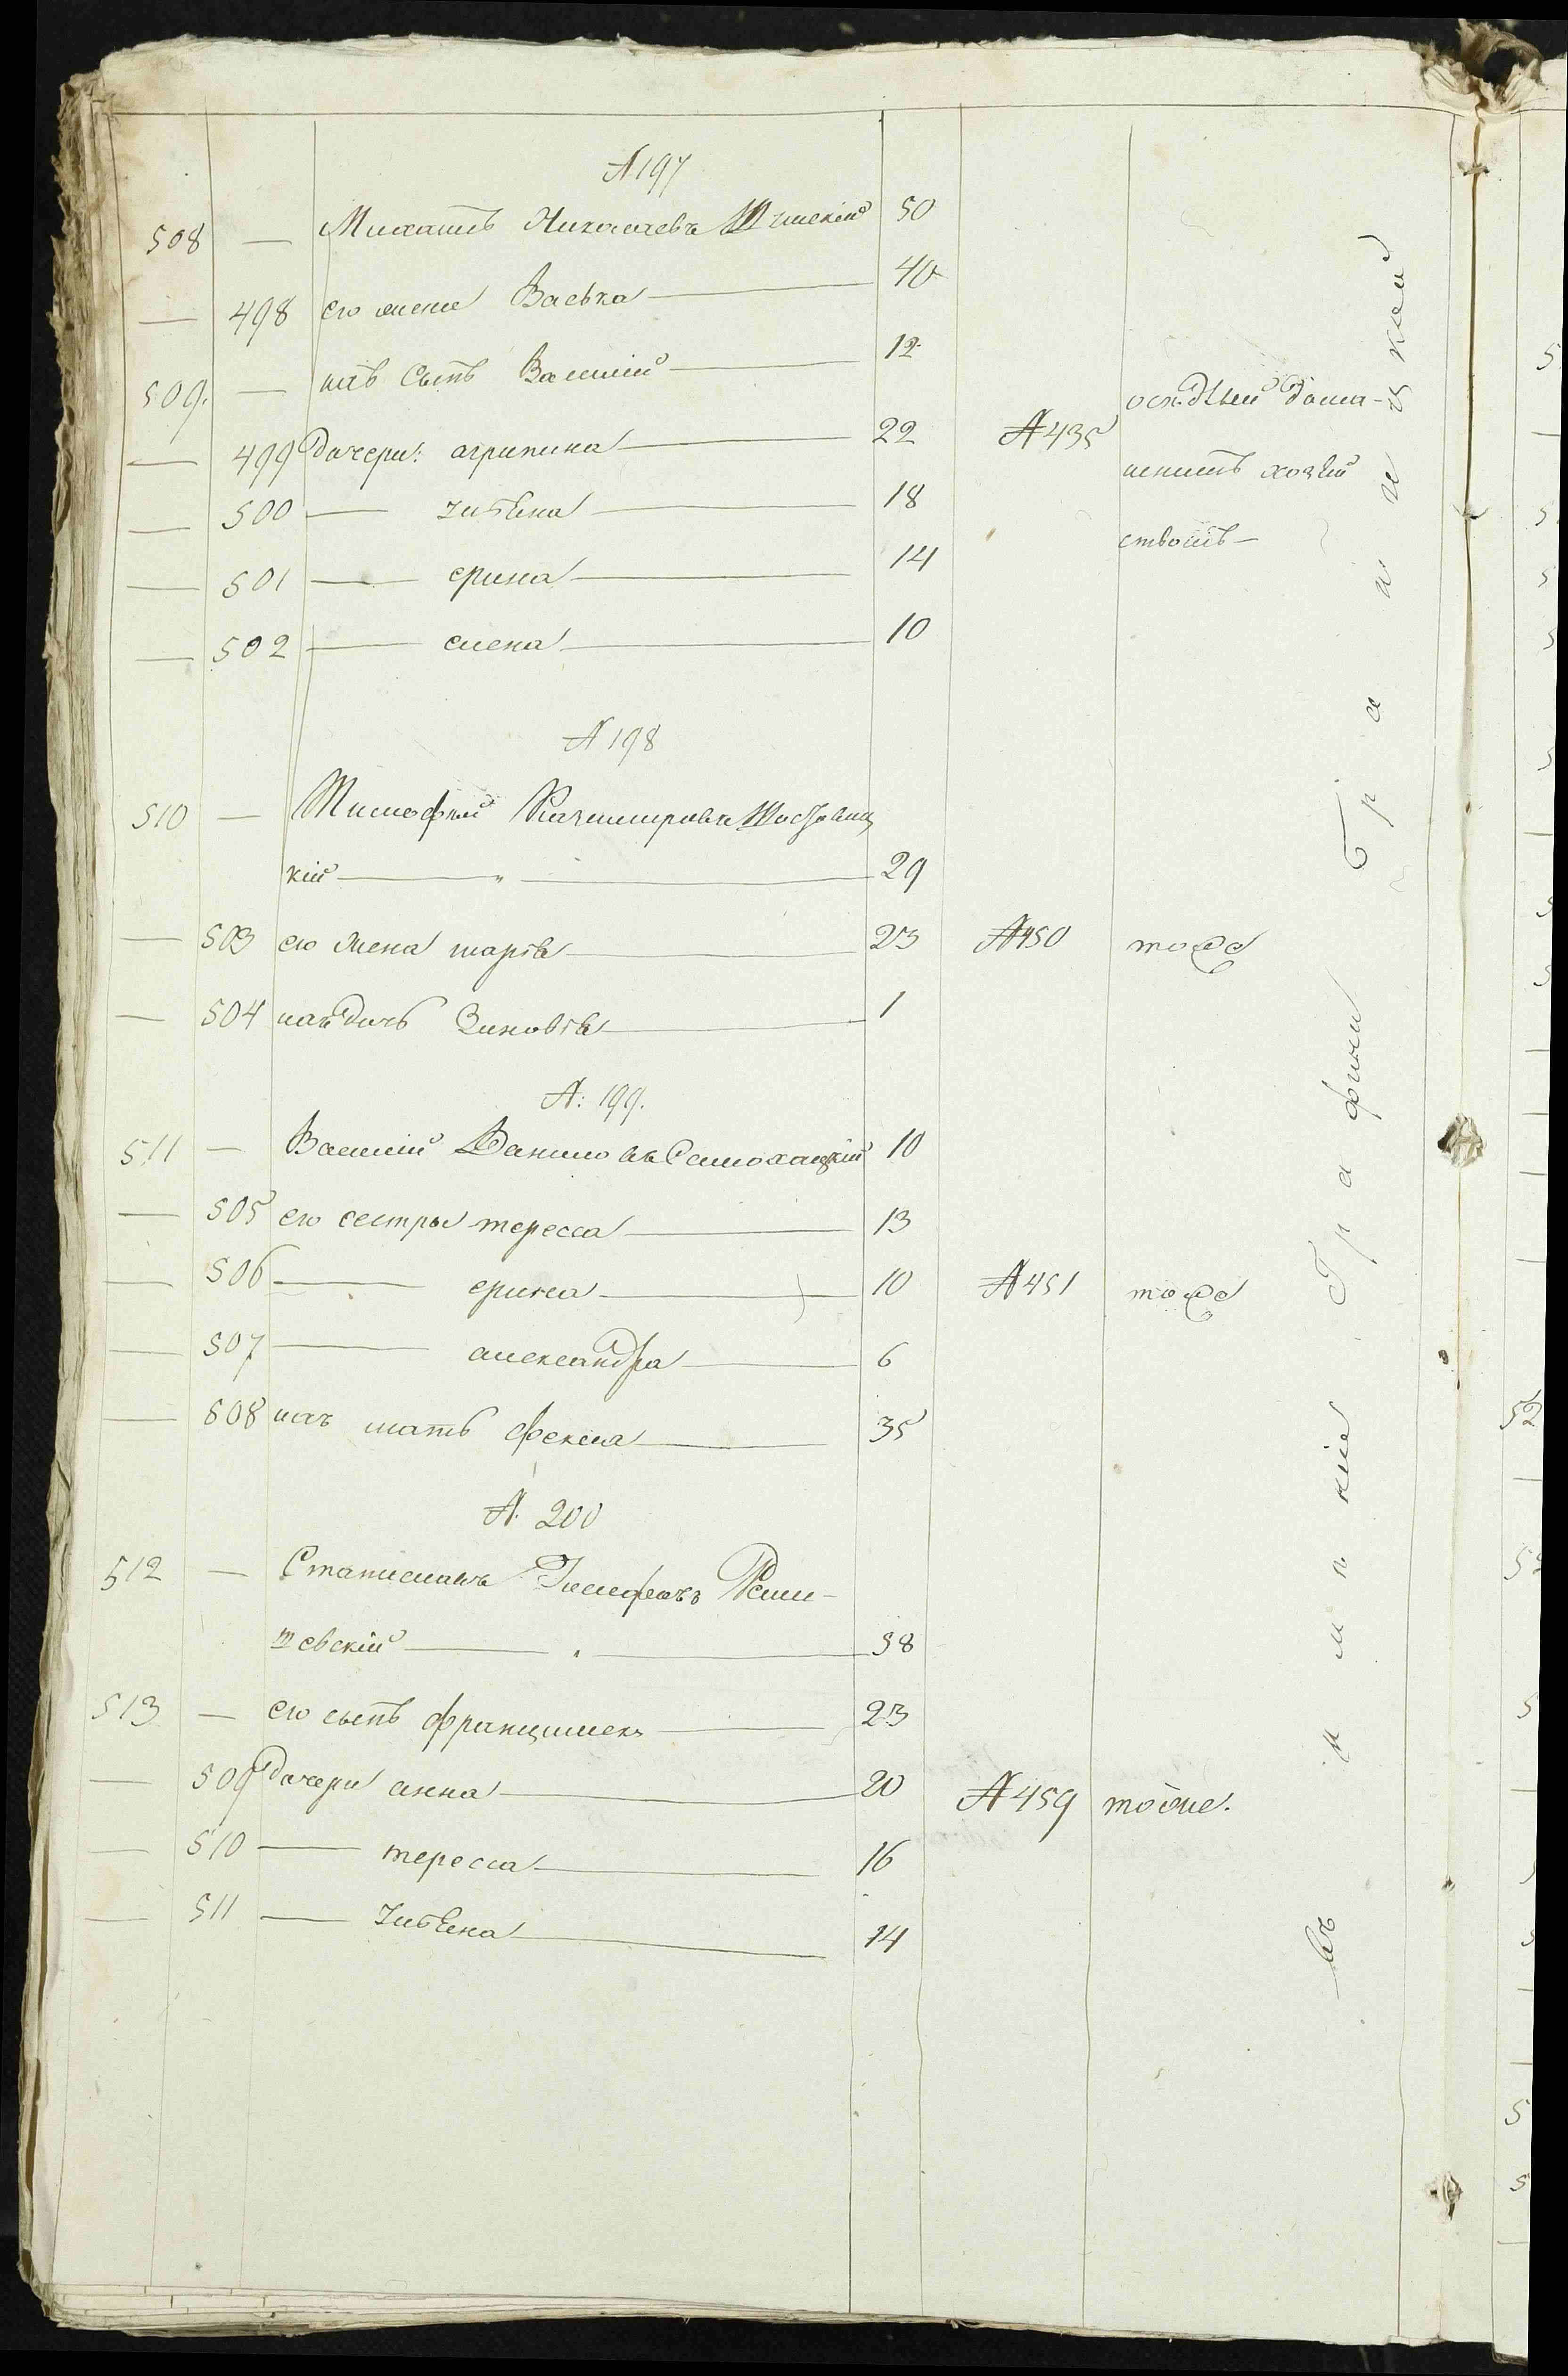 № 197
508 — Михаилъ Николаевъ 50
— 498 его жена Васька — 40
509. — ихъ Сынъ Василий — 12
— 499 дочери: агрипина — 22 № 435 домаш-
— 500 — — 18 нимъ хозяй
— 501 — ерина — 14 ствомъ —
— 502 — елена — 10
№ 198
510 — Тимофей Казимировъ
кий — " — 29
— 503 его жена марья — 23 № 450 тоже
— 504 ихъ дочь Зиновья — 1
№: 199.
511 — Василий Даниловъ Самохацкий 10
— 505 его сестры тересса — 13
— 506 — ерина — 10 № 451 тоже
— 507 — александра — 6
— 508 ихъ мать Фекла — 35
№. 200
512 — Станиславъ Иосифовъ
шевский — " — 58
513 — его сынъ францишекъ — 23
— 509 дочери анна — 20 № 459 тоже.
— 510 — тересса — 16
— 511 — — 14
въ имении Графини Браницкой